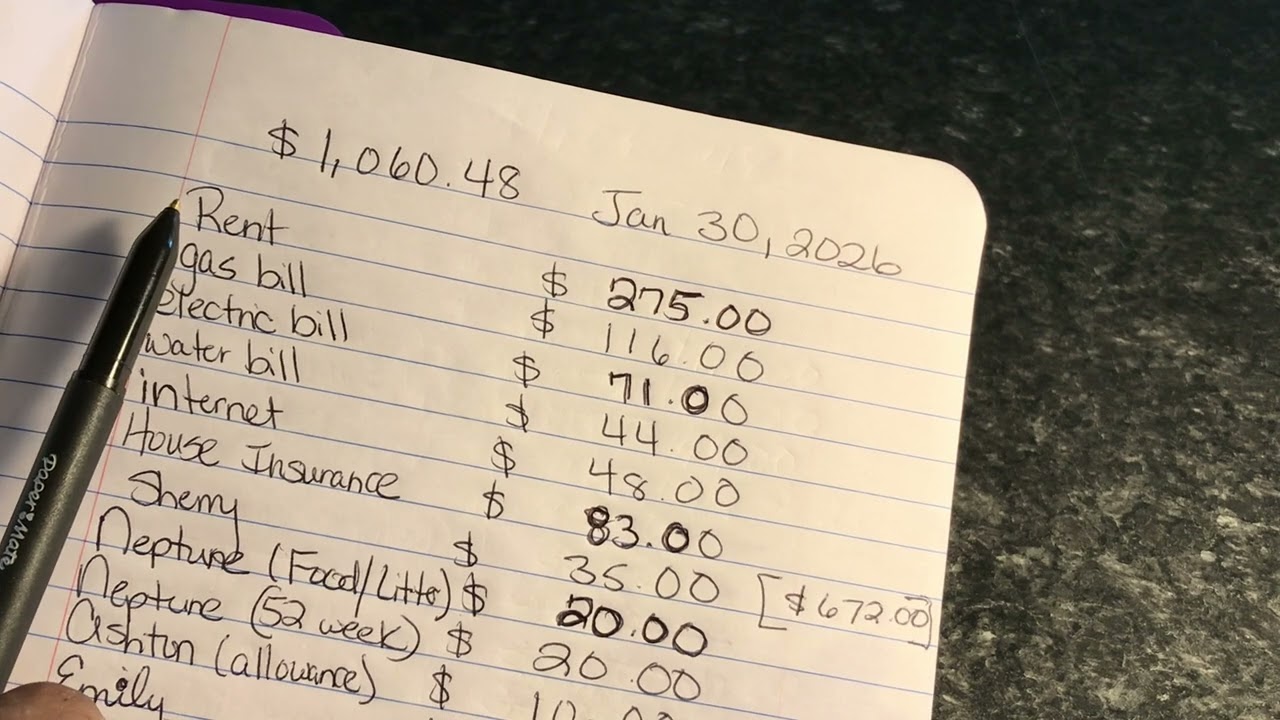 $ 1,060.48 Jan 30, 2026
Rent $ 275.00
gas bill $ 116.00
electric bill $ 71.00
water bill $ 44.00
internet $ 48.00
House Insurance $ 83.00
Sherry $ 35.00 [$672.00]
Neptune (Food/Litter) $ 20.00
Neptune (52 week) $ 20.00
Ashton (allowance) $ 10.00
Emily
Paper:Mate